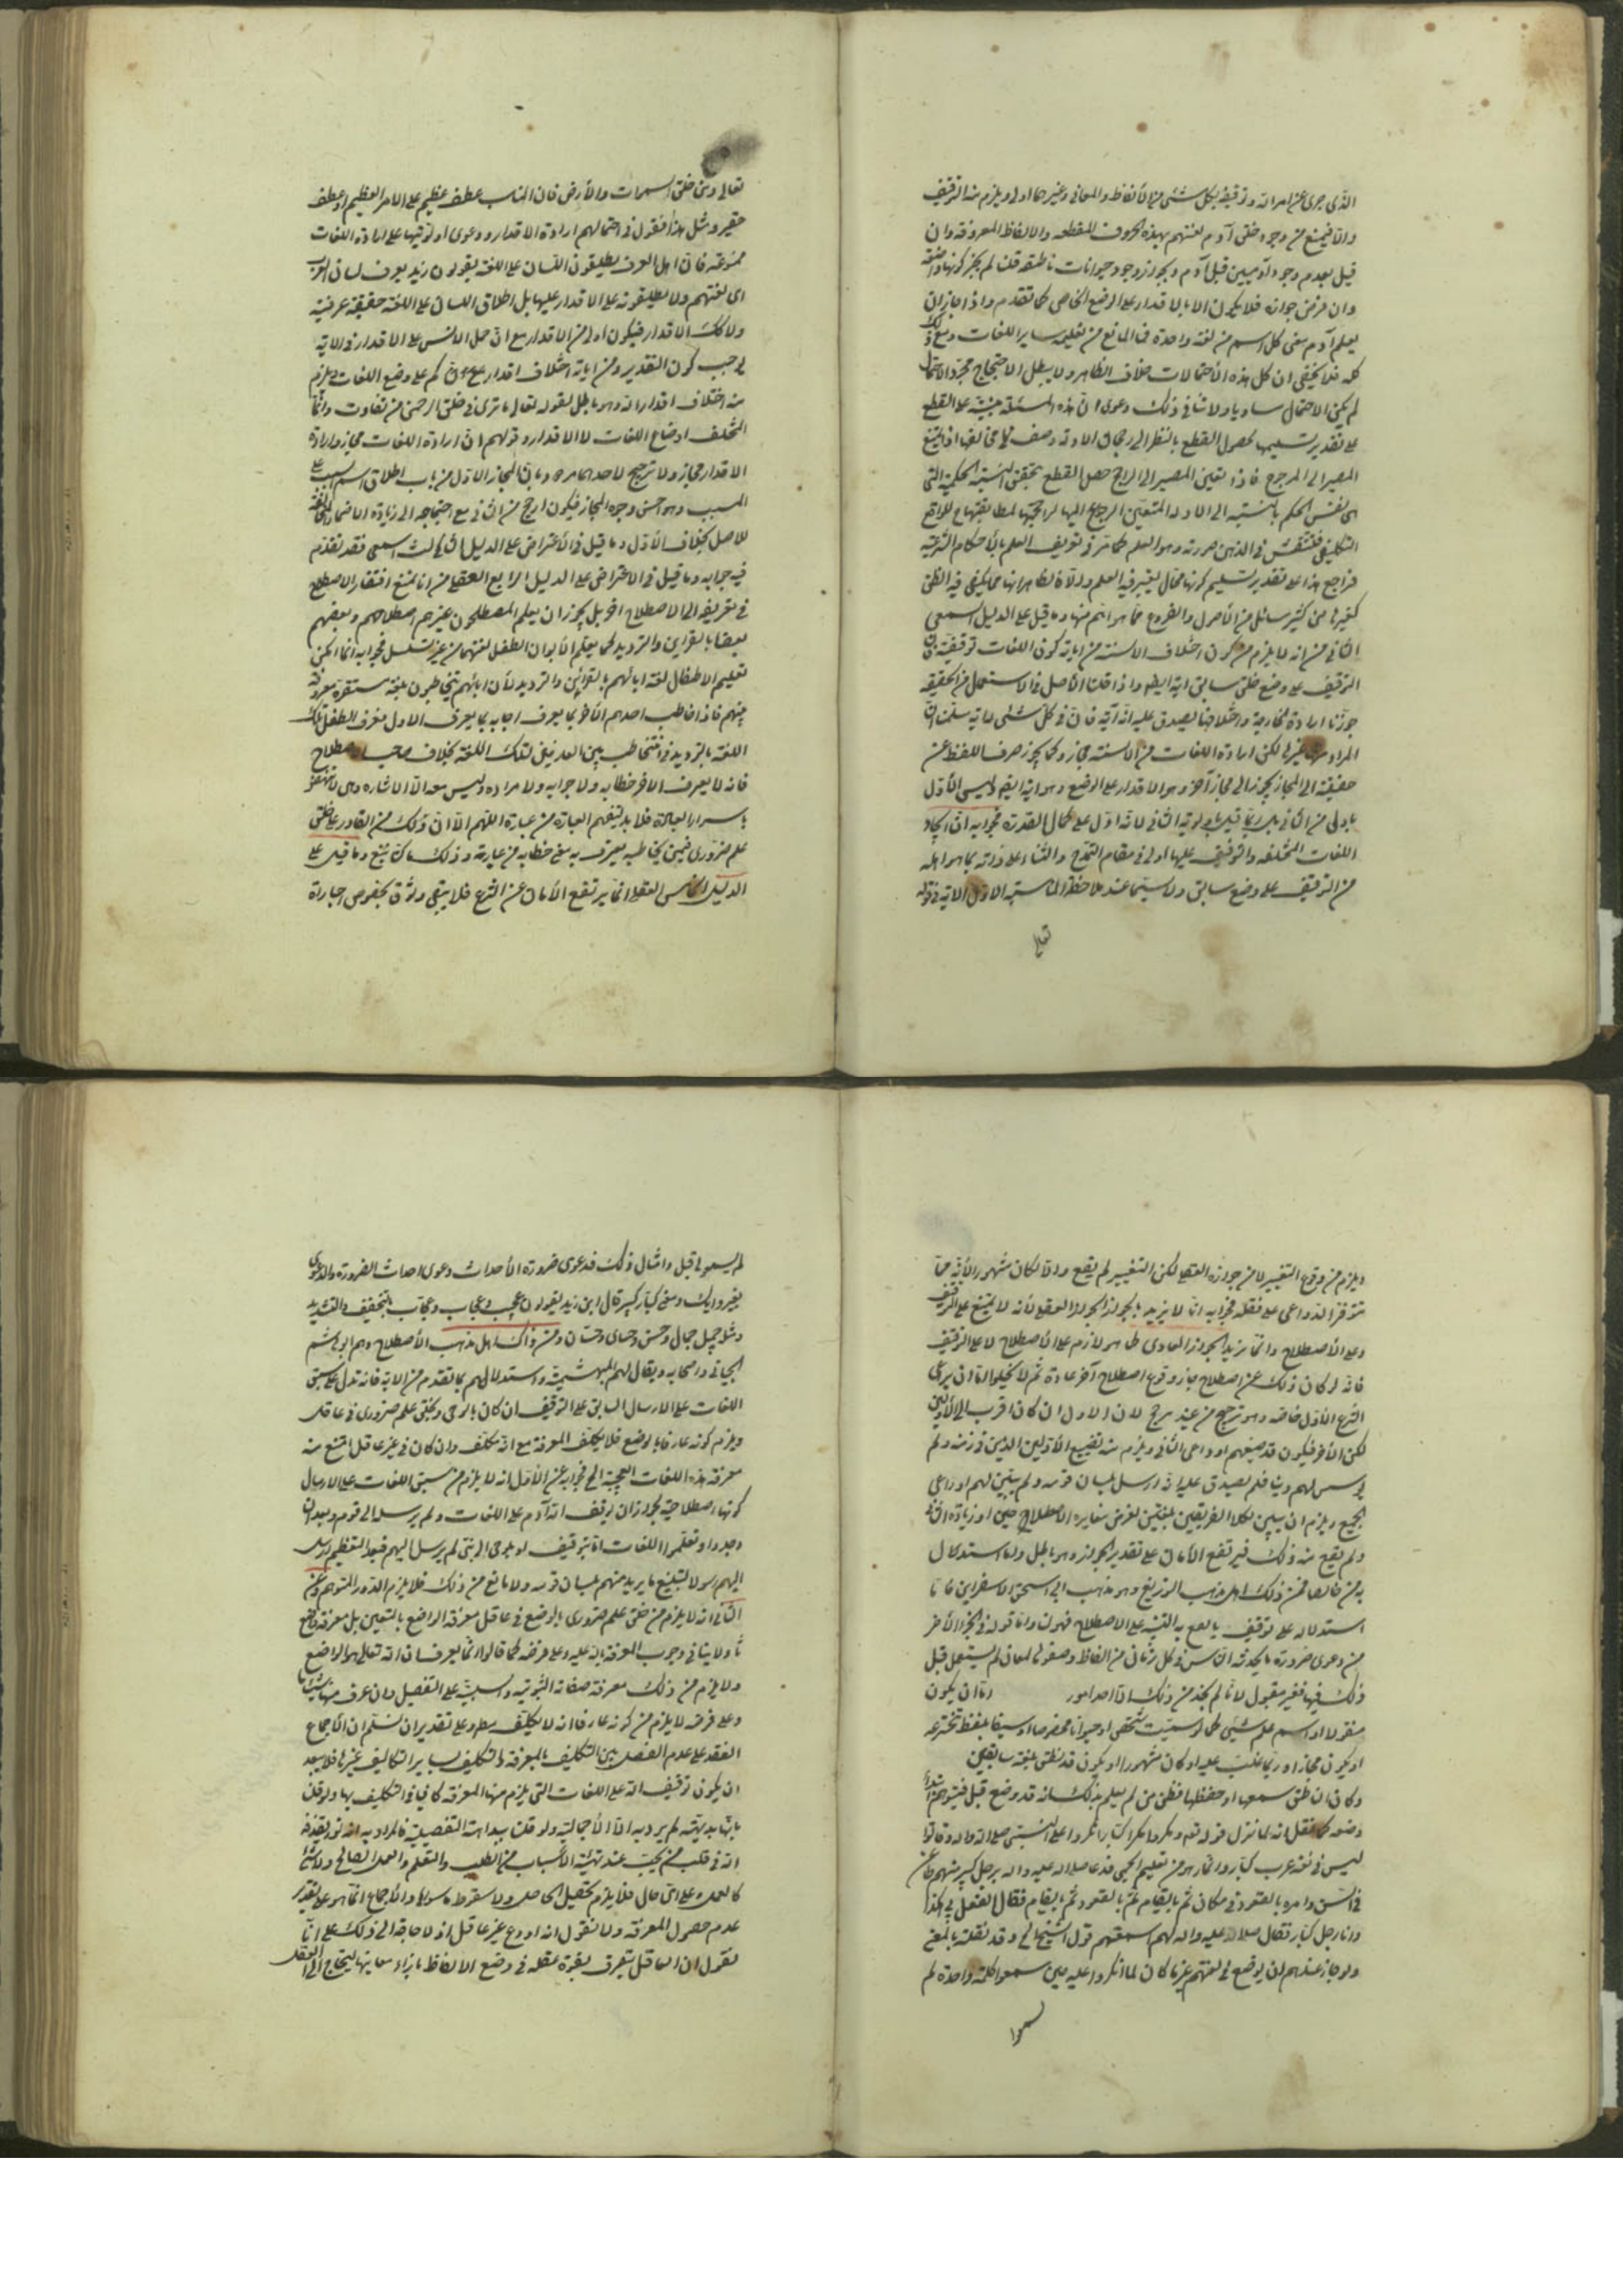 الذى جرى عن امر الله وتوقيفه لكل شئ من الألفاظ والمعانى وغيرهما اولى ويلزم منه التوقيف
والا فيمنع من وجود خلق آدم لغتهم بهذه الحروف المقطعه والالفاظ المعروفه وان
قيل بعدم وجود آدميين قبل آدم ويجوز وجود حيوانات ناطقه قلنا لم يجز كونها
وان فرض جوازه فلا يكون الا بالاقدار على الوضع الخاص كما تقدم واذا جاز ان
يعلم آدم معنى كل اسم من لغة واحدة فما المانع من تعليمه ساير اللغات ومع ذلك
كله فلا يخفى ان كل هذه الأحتمالات خلاف الظاهر ولا يبطل الاحتجاج مجرد الاحتمال
لم يكن الاحتمال مساويا ولا شك فى ذلك ودعوى ان هذه المسئلة مبنية على القطع
على تقدير تسليمها لحصول القطع بالنظر الى رجحان الادلة وضعف ما خالفها اذ يمتنع
المصير الى المرجوح فاذا تعين المصير الى الراجح حصل القطع بتحقق النسبة الحكمية التى
هى نفس الحكم بالنسبة الى الادلة المتعين الرجوع اليها لراجحيتها لمطابقتها للواقع
التكليفى فتنتقش فى الذهن صورته وهو العلم كما مر فى تعريف العلم بالأحكام الشرعية
فراجع هذا على تقدير تسليم كونها مما يعتبر فيه العلم والا فالظاهر انها مما يكفى فيه الظن
كغيرها من كثير مسائل من الأصول والفروع مما هو اهم منها وما قيل على الدليل السمعى
الثانى من انه لا يلزم من كون اختلاف الالسنة من اياته كون اللغات توقيفية فان
التوقيف على وضع خلق سابق اية ايضا واذا قلنا الأصل فى الاستعمال الحقيقه
جوزنا ارادة الجارحة واختلافها يصدق عليه انه آية فان فى كل شئ له اية سلمنا ان
المراد غيرها لكن ارادة اللغات من الالسنة مجاز وكما يجوز صرف اللفظ عن
حقيقته الى المجاز يجوز الى مجاز آخر وهو الاقدار على الوضع وهو اية ايضا وليس الأول
باولى من الثانى بل ربما قيل باولوية الثانى لانه ادل على كمال القدرة فجوابه ان ايجاد
اللغات المختلفه والتوقيف عليها اولى فى مقام التمدح والثناء على ذاته بما هو اهله
من التوقيف على وضع سابق ولا سيما عند ملاحظة المناسبة الاول الاية فى قوله
تعالى
تعالى ومن خلق السموات والأرض فان المناسب عطف عظيم على الامر العظيم او عطف
حقير ومثل هذا فنقول فى احتمالهم ارادة الاقدار ودعوى اولويتها على ارادة اللغات
ممنوعة فان اهل العرف يطلقون اللسان على اللغة يقولون زيد يعرف لسان العرب
اى لغتهم ولا يطلقونه على الاقدار عليها بل اطلاق اللسان على اللغة حقيقة عرفية
ولا كك الاقدار فيكون اولى من الاقدار مع ان حمل الالسن على الاقدار فى الاية
يوجب كون التقدير ومن اياته اختلاف اقداركم على وضع اللغات فيلزم
منه اختلاف اقدار الله وهو باطل لقوله تعالى ما ترى فى خلق الرحمن من تفاوت وانما
المختلف اوضاع اللغات لا الاقدار وقولهم ان ارادة اللغات مجاز وارادة
الاقدار مجاز ولا ترجيح لاحدهما مردود بان المجاز الاول من باب اطلاق اسم السبب على
المسبب وهو احسن وجوه المجاز فيكون ارجح من الثانى مع احتياجه الى زيادة الاضمار المخالف
للاصل بخلاف الأول وما قيل فى الأعتراض على الدليل الثالث السمعى فقد تقدم
فيه جوابه وما قيل فى الاعتراض على الدليل الرابع العقلى من انا نمنع افتقار الاصطلاح
فى تعريفه الى الاصطلاح اخر بل يجوز ان يعلم المصطلحون غيرهم اصطلاحهم وبعضهم
بعضا بالقراين والترديد كما يعلم الأبوان الطفل لغتهما من غير تسلسل فجوابه انما امكن
تعليم الاطفال لغة ابائهم بالقرائن والترديد لأن ابائهم يتخاطبون بلغة مستقرة معروفة
بينهم فاذا خاطب احدهم الأخر بما يعرف اجابه بما يعرف الاول فعرف الطفل تلك
اللغة بالترديد فى التخاطب بين العارفين لتلك اللغة بخلاف صاحب الاصطلاح
فانه لا يعرف الاخر خطابه ولا جوابه ولا مراده وليس معه الا الاشاره وهى لا تنهض
باسرار العبارة فلا بد لتفهيم العبارة من عبارة اللهم الا ان ذلك من القادر على خلق
علم ضرورى فيمن يخاطبه يعرف به معنى خطابه من عبارته وذلك ما لا يمنع وما قيل على
الدليل الخامس العقلى انما يرتفع الأمان عن الشرع فلا يبقى وثوق بخصوص اخباره
ويلزم من وقوع التغيير لا من جوازه العقلى لكن التغيير لم يقع والا لكان مشهورا لأنه مما
تتوفر الدواعى على نقله فجوابه انا لا نريد بالجواز الجواز العقلى لأنه لا يمتنع على التوقيف
وعلى الأصطلاح وانما نريد الجواز العادى كما هو لازم على الأصطلاح لا على التوقيف
فانه لو كان ذلك عن اصطلاح جاز وقوع اصطلاح آخر عادة ثم لا يخلو اما ان يراعى
الشرع الأول خاصه وهو ترجيح من غير مرجح لان الاول ان كان اقرب الى الأولين
لكن الأخر فيكون قد ضيعهم او راعى الثانى ويلزم منه تضييع الأولين الذين فى زمنه ولم
يؤسس لهم دينا فلم يصدق عليه انه ارسل بلسان قومه ولم يبين لهم او راعى
الجميع ويلزم ان يبين لكلا الفريقين بلغتين لفرض مغايرة الاصطلاح حين او زيادة
ولم يقع منه ذلك فيرتفع الأمان على تقدير الجواز وهو باطل وما استدلال
به من خالفنا فمن ذلك اهل مذهب التوزيع وهو مذهب ابى اسحق الاسفراينى فاما
استدلاله على توقيف ما يقع به التنبيه على الاصطلاح فهو لنا واما قوله فى الجزء الأخر
من دعوى ضرورة ما يحدثه الناس فى كل زمان من الفاظ وضعوها لمعان لم يستعمل قبل
ذلك فيها فغير مقبول لانا لم نجد من ذلك الا احد امور اما ان يكون
منقولا او اسم علم شئ كما لو سميت شخصا او حيوانا مخصوصا او سيفا بلفظ تخترعه
او يكون مجازا وربما غلب عليه او كان مشهورا او يكون قد نطق بلغة سابقين
وكان ان ظن سمعها او حفظها فظن من لم يعلم بذلك انه قد وضع قبل فيتوهم ابتداء
وضعه كما نقل انه لما نزل قوله تعالى ومكروا مكرا كبارا انكروا على النبى صلى الله عليه واله وقالوا
ليس فى لغة عرب كبار وانما هو من تعليم العجمى فدعا صلى الله عليه واله برجل كبير منهم طاعن
فى السن وامره بالقعود فى مكان ثم بالقيام ثم بالقعود ثم بالقيام فقال اتفعل بى هكذا
وانا رجل كبار فقال صلى الله عليه واله لهم اسمعتم قول الشيخ الخ وقد نقلته بالمعنى
ولو جاز عندهم ان يوضع فى لغتهم غير ما كان لما انكروا عليه حين سمعوا كلمة واحدة لم
يسمعوا
لم يسمعوها قبل وامثال ذلك فدعوى ضرورة الأحداث دعوى احداث الضرورة والدعوى
بغير دليل ومعنى كبار كبير قال ابن زيد يقولون عجيب وعجاب وعجاب بالتخفيف والتشديد
ومثله جميل جمال وحسن وحسان وحسان ومن ذلك اهل مذهب الأصطلاح وهم ابو هاشم
الجبائى واصحابه ويقال لهم البهشمية واستدلالهم بما تقدم من الاية فانه تدل على سبق
اللغات على الارسال السابق على التوقيف ان كان بالوحى وبخلق علم ضرورى فى عاقل
ويلزم كونه عارفا بالوضع فلا يكلف المعرفة مع انه مكلف وان كان فى غير عاقل امتنع منه
معرفة هذه اللغات العجيبة الخ فجوابه عن الأول انه لا يلزم من سبق اللغات على الارسال
كونها اصطلاحية لجواز ان يوقف الله آدم على اللغات ولم يرسله الى قوم وبعد ان
وجدوا وتعلموا اللغات اما بتوقيف او بوحى الى نبى لم يرسل اليهم فبعد التعظيم ارسل
اليهم رسولا لتبليغ ما يريد منهم بلسان قومه ولا مانع من ذلك فلا يلزم الدور المتوهم وعن
الثانى انه لا يلزم من خلق علم ضرورى بالوضع فى عاقل معرفة الواضع بالتعيين بل معرفة واضع
ما ولا ينافى وجوب المعرفة بالله عليه وعلى فرضه كما قالوا انما يعرف ان الله تعالى هو الواضع
ولا يلزم من ذلك معرفة صفاته الثبوتية والسلبية على التفصيل وان عرف منها شيئا
وعلى فرضه لا يلزم من كونه عارفا انه لا يكلف مطلقا وعلى تقدير ان نسلم ان الأجماع
انعقد على عدم الفصل بين التكليف بالمعرفة والتكليف بساير التكاليف غيرها فلا يبعد
ان يكون توقيف الله على اللغات التى يلزم منها المعرفة كافيا فى التكليف بها ولو قلنا
بانها بديهية لم يرد به الا الأجمالية ولو قلنا ببداهة التفصيلية فالمراد به انه نور يقذفه
الله فى قلب من يحب عند تهيئة الأسباب من الطلب والتعلم والعمل الصالح
كالعدم على اى حال فلا يلزم تحصيل الحاصل ولا سقوط ما سواها والأجماع انما هو على تقدير
عدم حصول المعرفة ولا نقول انه اودع غير عاقل اذ لا حاجة الى ذلك على انا
نقول ان العاقل يتعرف بقوة عقله فى وضع الالفاظ بازاء معانيها ليحتاج الى العقل